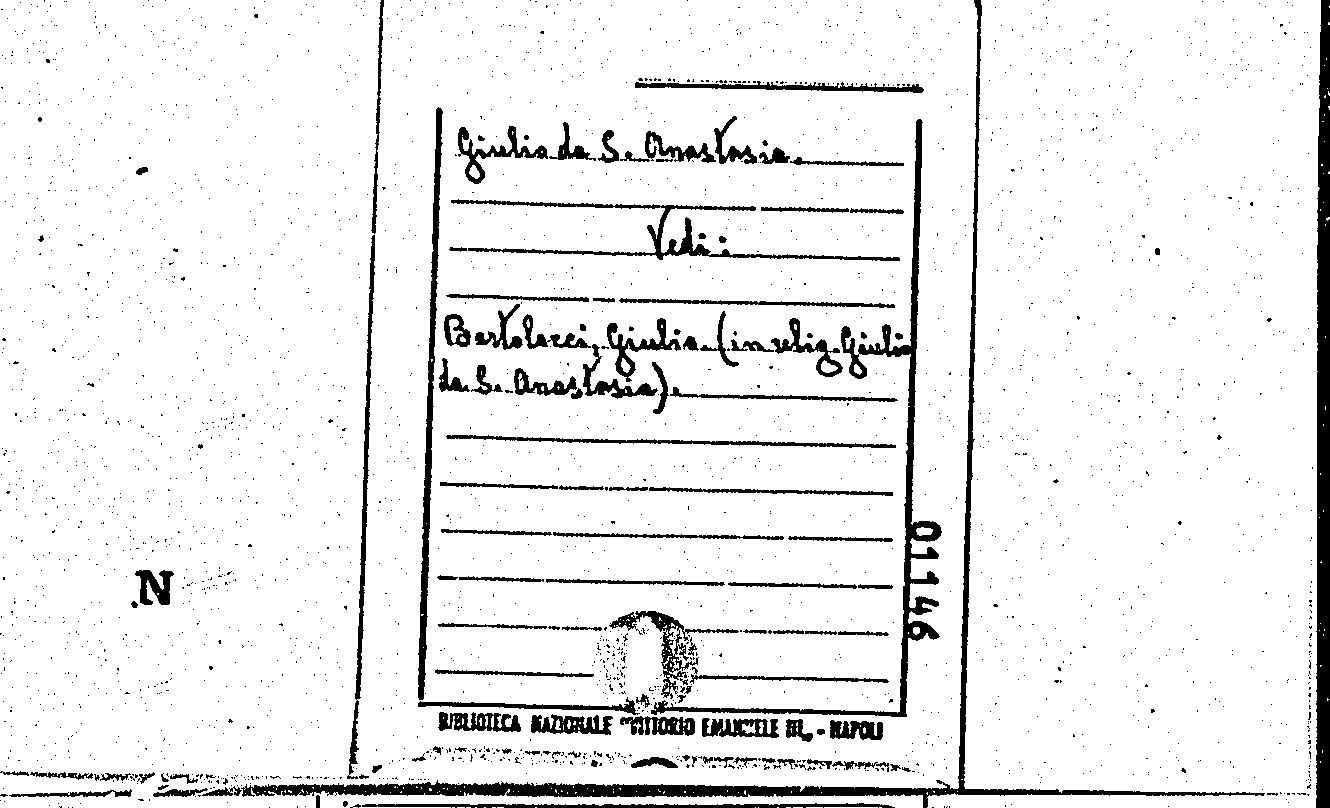 Giulio da S. Anastasia.
Vedi:
Bartolocci, Giulio (in relig. Giulio
da S. Anastasia).
01146
N
BIBLIOTECA NAZIONALE "VITTORIO EMANUELE III„ - NAPOLI